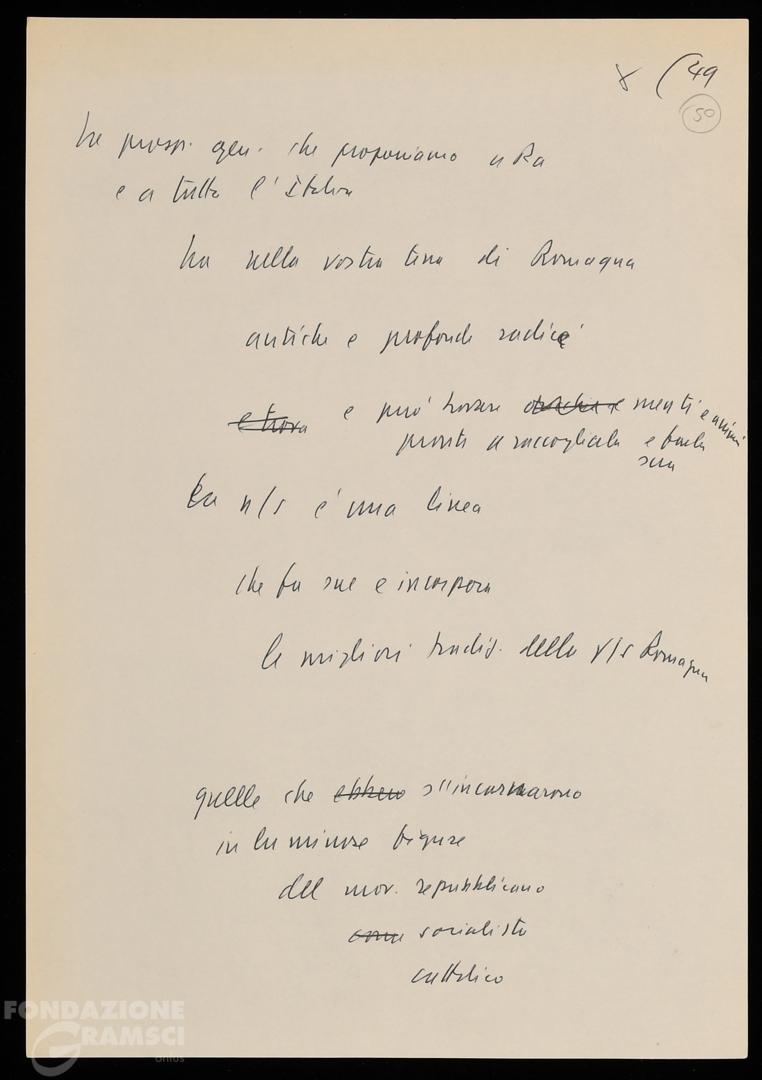 8 (49
50
La prosp. gen. che proponiamo a Ra
e a tutta l'Italia
ha nella vostra terra di Romagna
antiche e profonde radici
e trova e può trovare menti e animi
pronti a raccoglierla e farla
sua
La n/s è una linea
che fa sue e incorpora
le migliori tradiz. della V/s Romagna
quelle che ebbero s'incarnarono
in luminose figure
del mov. repubblicano
come socialista
cattolico
FONDAZIONE
GRAMSCI
onlus